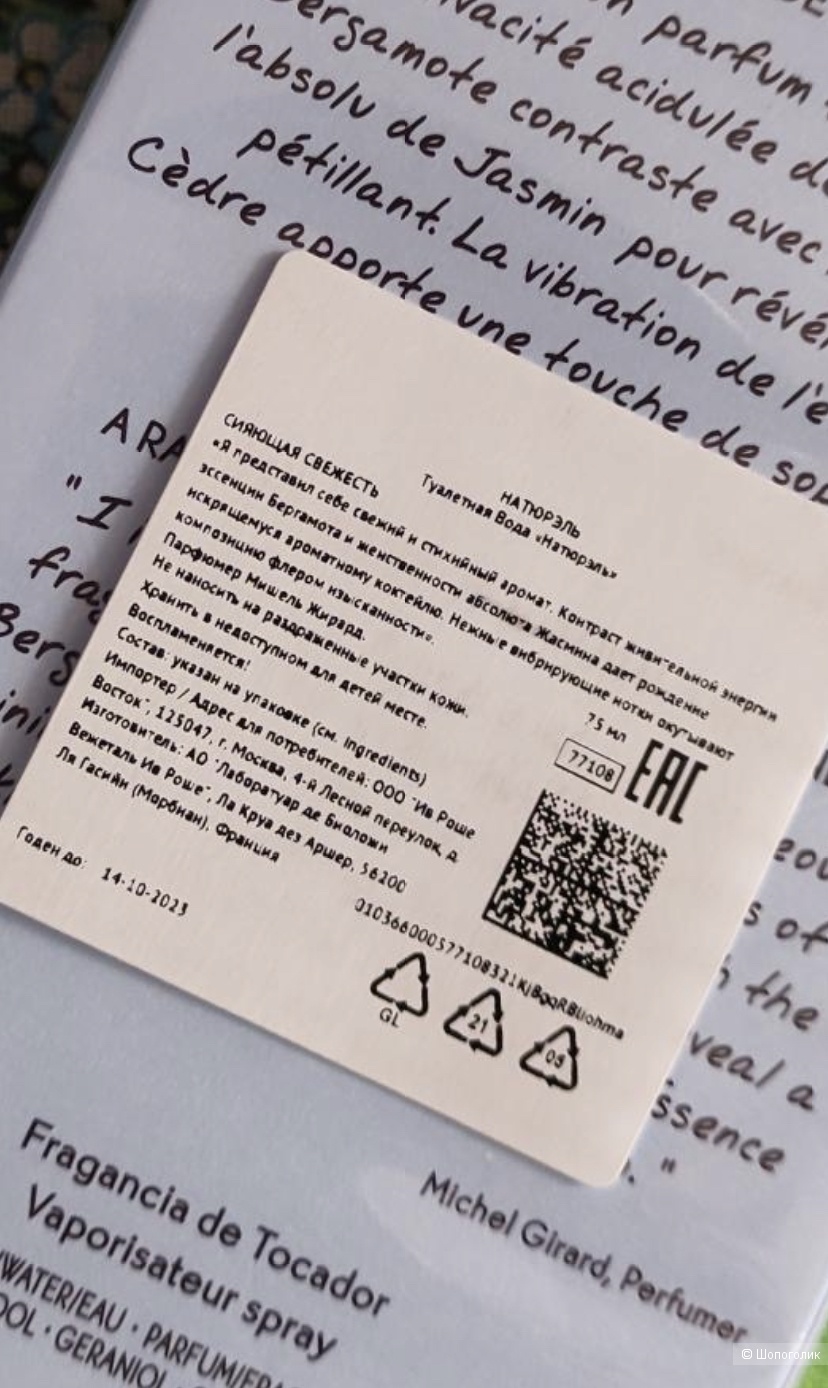 parfum
vivacité acidulée de
Bergamote contraste avec
l'absolu de Jasmin pour
pétillant. La vibration de
Cèdre apporte une touche de
НАТЮРЭЛЬ
Туалетная Вода «Натюрэль»
СИЯЮЩАЯ СВЕЖЕСТЬ
«Я представил себе свежий и стихийный аромат. Контраст живительной энергии
эссенции Бергамота и женственности абсолюта Жасмина дает рождение
искрящемуся ароматному коктейлю. Нежные вибрирующие нотки окутывают
композицию флером изысканности».
Парфюмер Мишель Жирард.
Не наносить на раздраженные участки кожи.
Хранить в недоступном для детей месте.
Воспламеняется!
Состав: указан на упаковке (см. Ingredients)
Импортер / Адрес для потребителей: ООО "Ив Роше
Восток", 125047, г. Москва, 4-й Лесной переулок, д.
Изготовитель: АО "Лаборатуар де Биоложи
Вежеталь Ив Роше", Ла Круа дез Аршер, 56200
Ля Гасийи (Морбиан), Франция
75 мл
77108
EAC
Годен до: 14-10-2023
GL
21
05
"I
of
the
a
"
Michel Girard, Perfumer
Fragancia de Tocador
Vaporisateur spray
WATER/EAU · 
GERANIOL ·
© Шопоголик